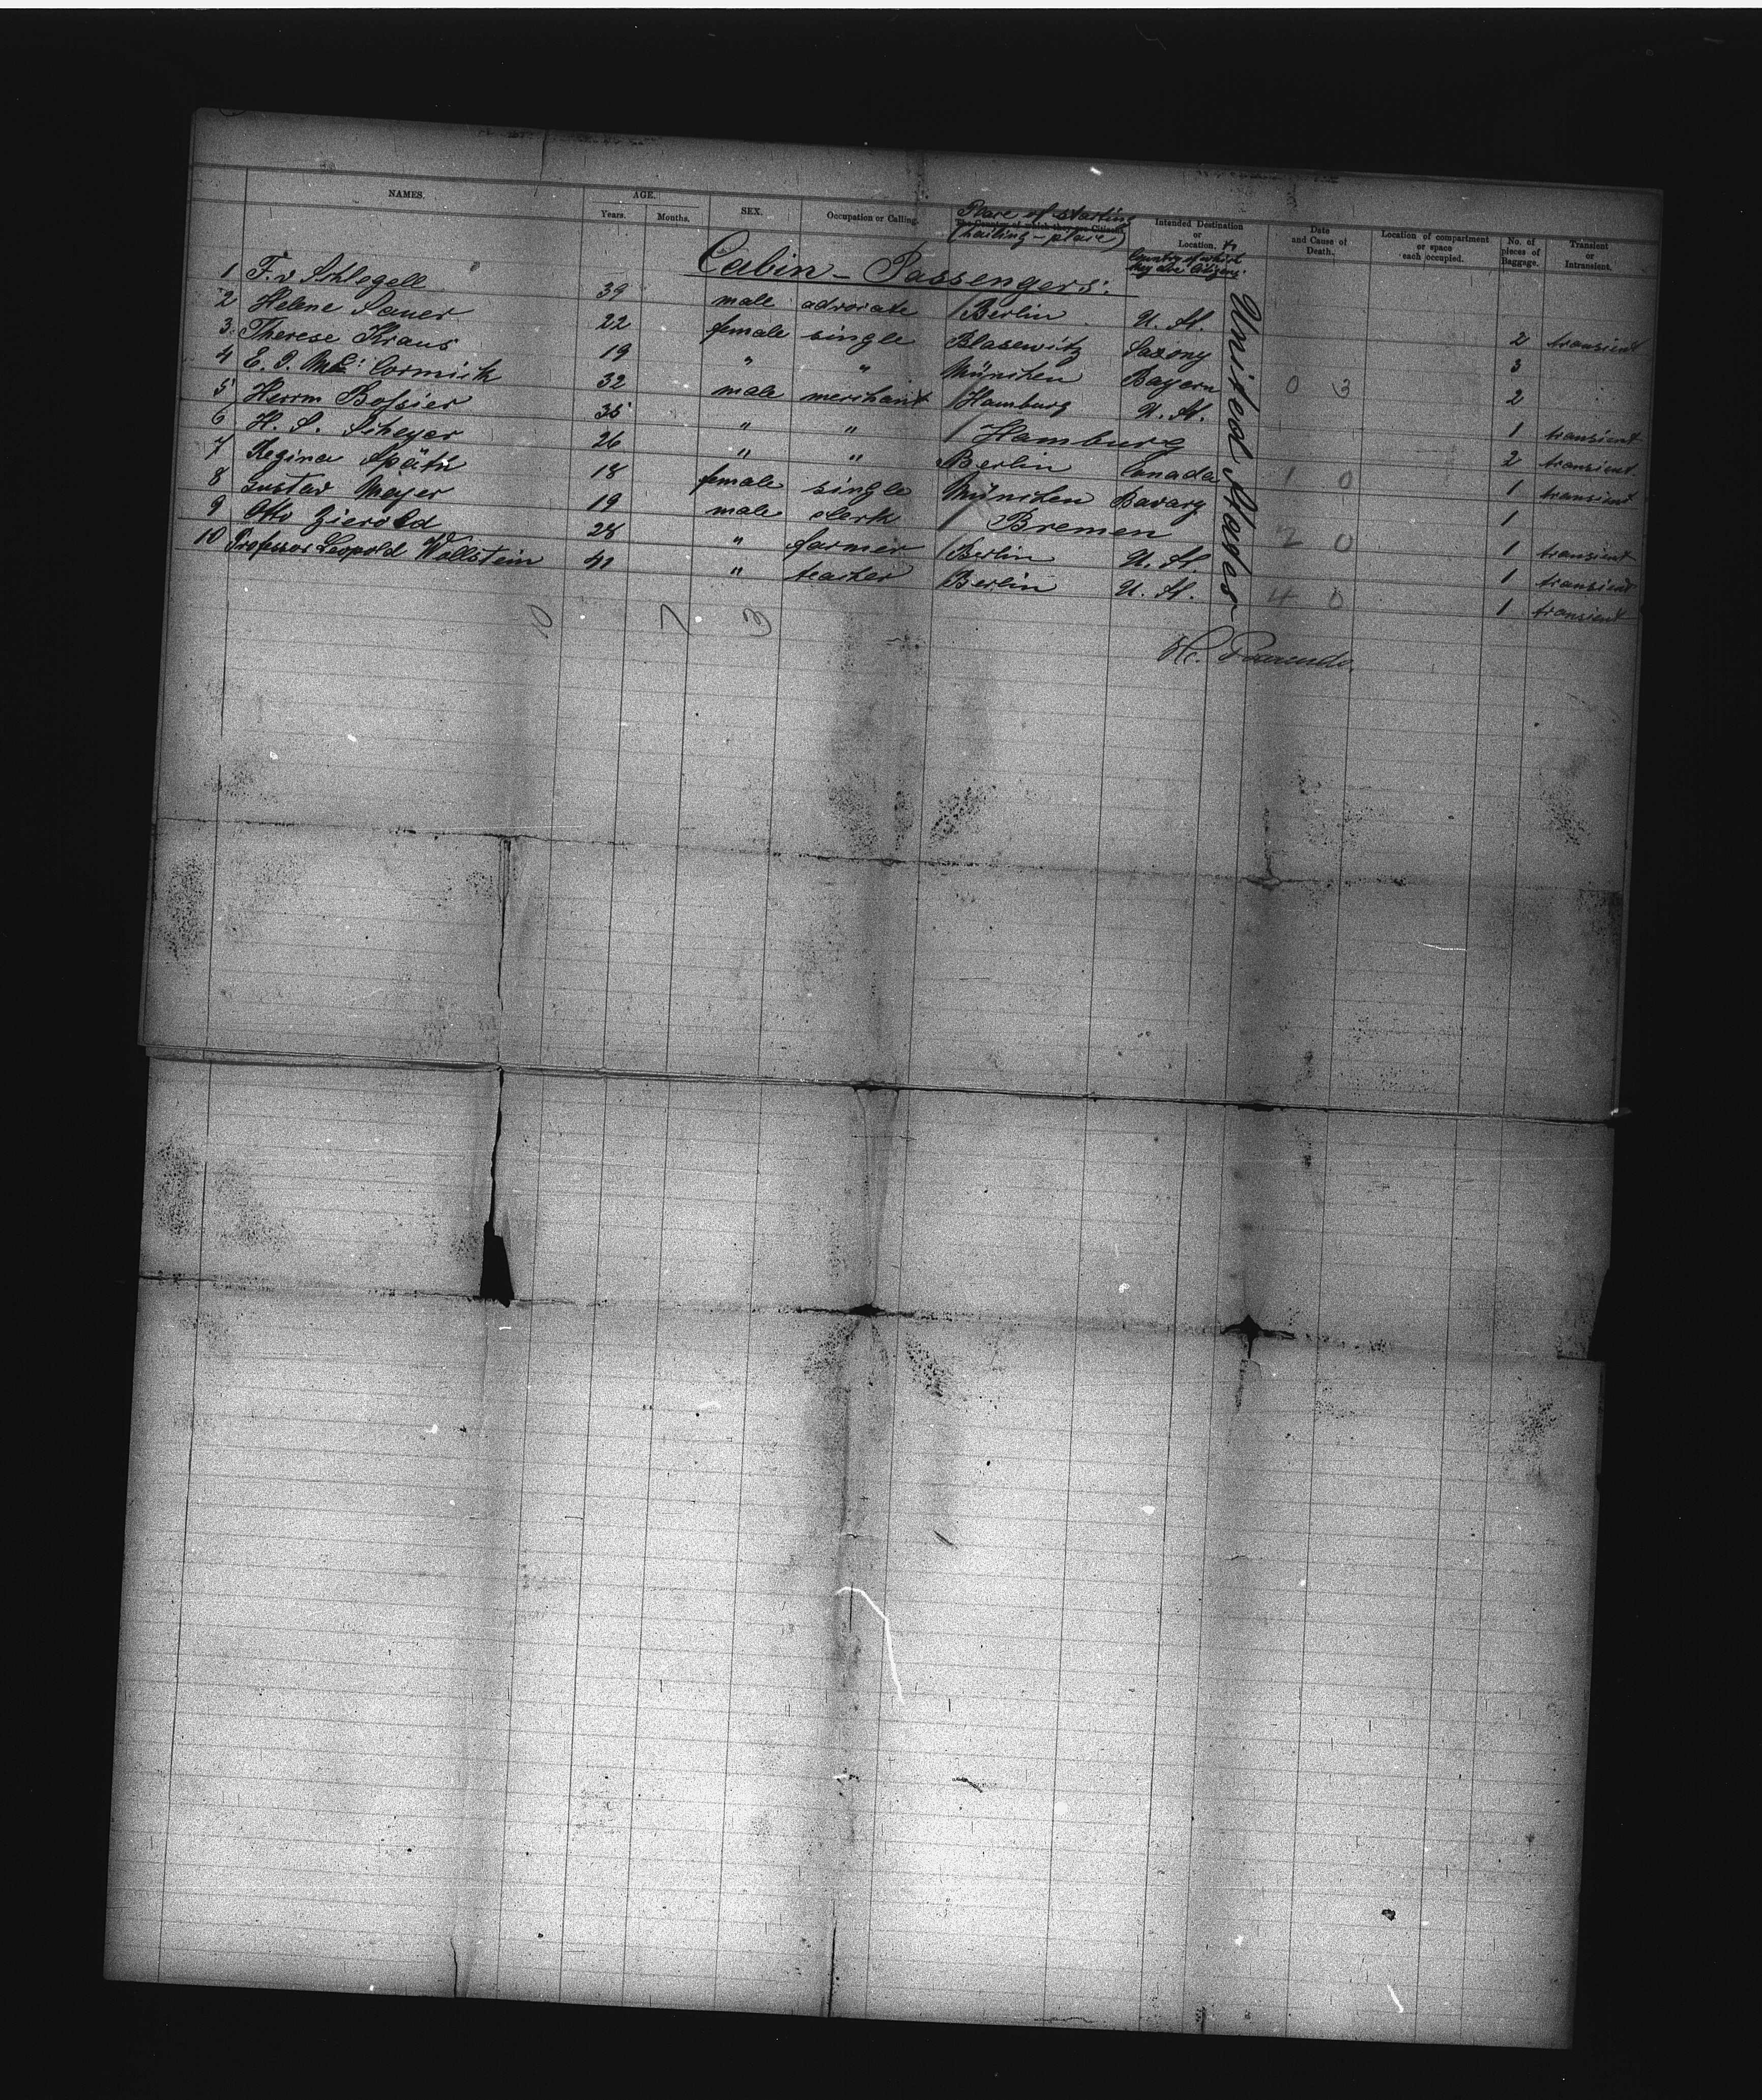 NAMES. AGE. SEX. Occupation or Calling. Place of starting Intended Destination Date Location of compartment No. of Transient
Years. Months. The Country of which they are Citizens or and Cause of or space pieces of or
(hailing-place) Location, & Death. each occupied. Baggage. Intransient.
Country of which
they are Citizens.
Cabin-Passengers:
1 F. v Schlegell 39 male advocate / Berlin U. St. 2 transient
2 Helene Sauer 22 female single Blasewitz Saxony 3
3 Therese Kraus 19 " " München Bayern 2
4 E. J. Mc Cormick 32 male merchant / Hamburg U. St. 1 transient
5 Herrm Bossier 35 " " / Hamburg 2 transient
6 H. S. Scheyer 26 " " Berlin Canada 1 transient
7 Regina Späth 18 female single München Bavary 1
8 Gustav Meyer 19 male clerk / Bremen 1 transient
9 Otto Zierold 28 " farmer / Berlin U. St. 1 transient
10 Professor Leopold Wallstein 41 " teacher Berlin U. St. 1 transient
United States
0 3
1 0
2 0
4 0
10 7 3
H.